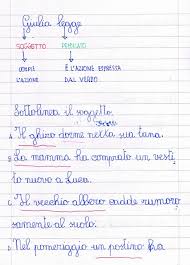 Giulia legge
SOGGETTO PREDICATO
COMPIE È L'AZIONE ESPRESSA
L'AZIONE DAL VERBO
Sottolinea il soggetto.
Il ghiro dorme nella sua tana.
La mamma ha comprato un vesti
to nuovo a Luca.
Il vecchio albero cadde rumoro
samente al suolo.
Nel pomeriggio un postino ha